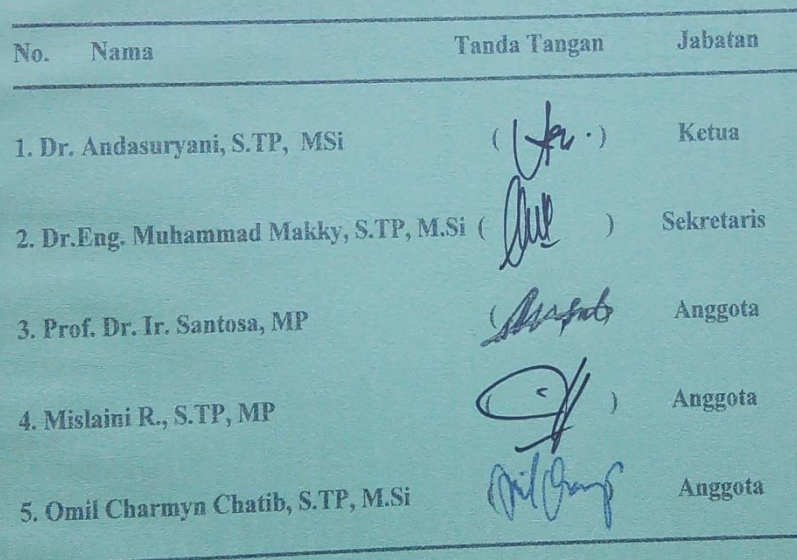 No. Nama Tanda Tangan Jabatan
1. Dr. Andasuryani, S.TP, MSi ( ) Ketua
2. Dr.Eng. Muhammad Makky, S.TP, M.Si ( ) Sekretaris
3. Prof. Dr. Ir. Santosa, MP ( Anggota
4. Mislaini R., S.TP, MP ( ) Anggota
5. Omil Charmyn Chatib, S.TP, M.Si Anggota